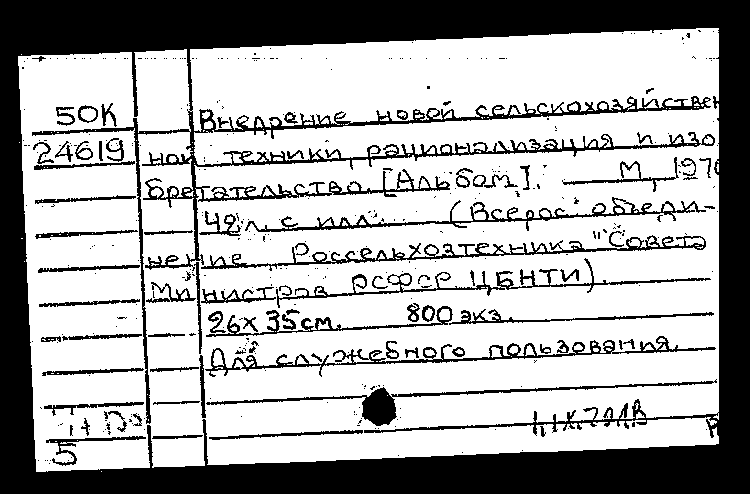 50К Внедрение новой сельскохозяйствен
24619 ной техники, рационализация и изо
бретательство. [Альбом]. — М., 1970
42 л. с илл. (Всерос. объеди-
нение Россельхозтехника" Совета
Министров РСФСР ЦБНТИ).
26х35см. 800 экз.
Для служебного пользования.
5